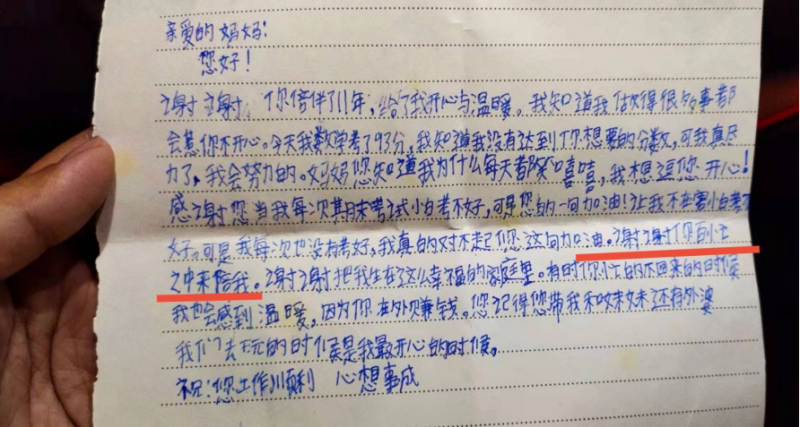 亲爱的妈妈:
您好!
谢谢,你陪伴了11年,给了我开心与温暖。我知道我做得很多事都
会惹你不开心。今天我数学考了93分,我知道我没有达到你想要的分数,可我真尽
力了,我会努力的。妈妈您知道我为什么每天都嘻嘻,我想逗您开心!
感谢您当我每次期末考试小白考不好,可是您的一句加油!让我不在害小白考不
好。可是我每次也没有考好,我真的对不起您这句加油。谢谢你百忙
之中来陪我。谢谢把我生在这么幸福的家庭里。有时你忙的不回来的时候
我也会感到温暖,因为你在外赚钱。您记得您带我和妹妹还有外婆
我们去玩的时候是我最开心的时候。
祝:您工作顺利 心想事成